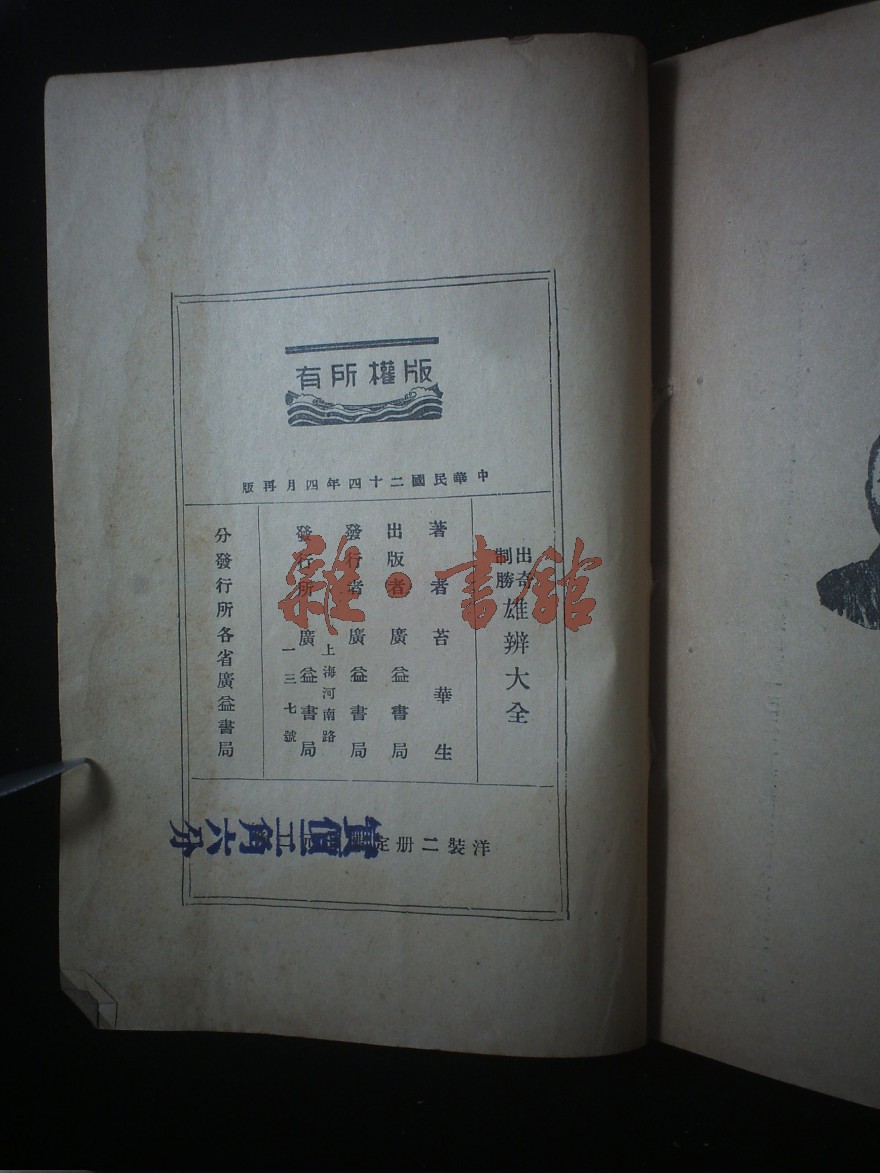 版權所有
中華民國二十四年四月再版
出奇
制勝
雄辨大全
著者苔華生
出版者廣益書局
發行者廣益書局
上海河南路
發行所廣益書局
一三七號
分發行所各省廣益書局
洋裝二册定
實價二角六分
雜·書館